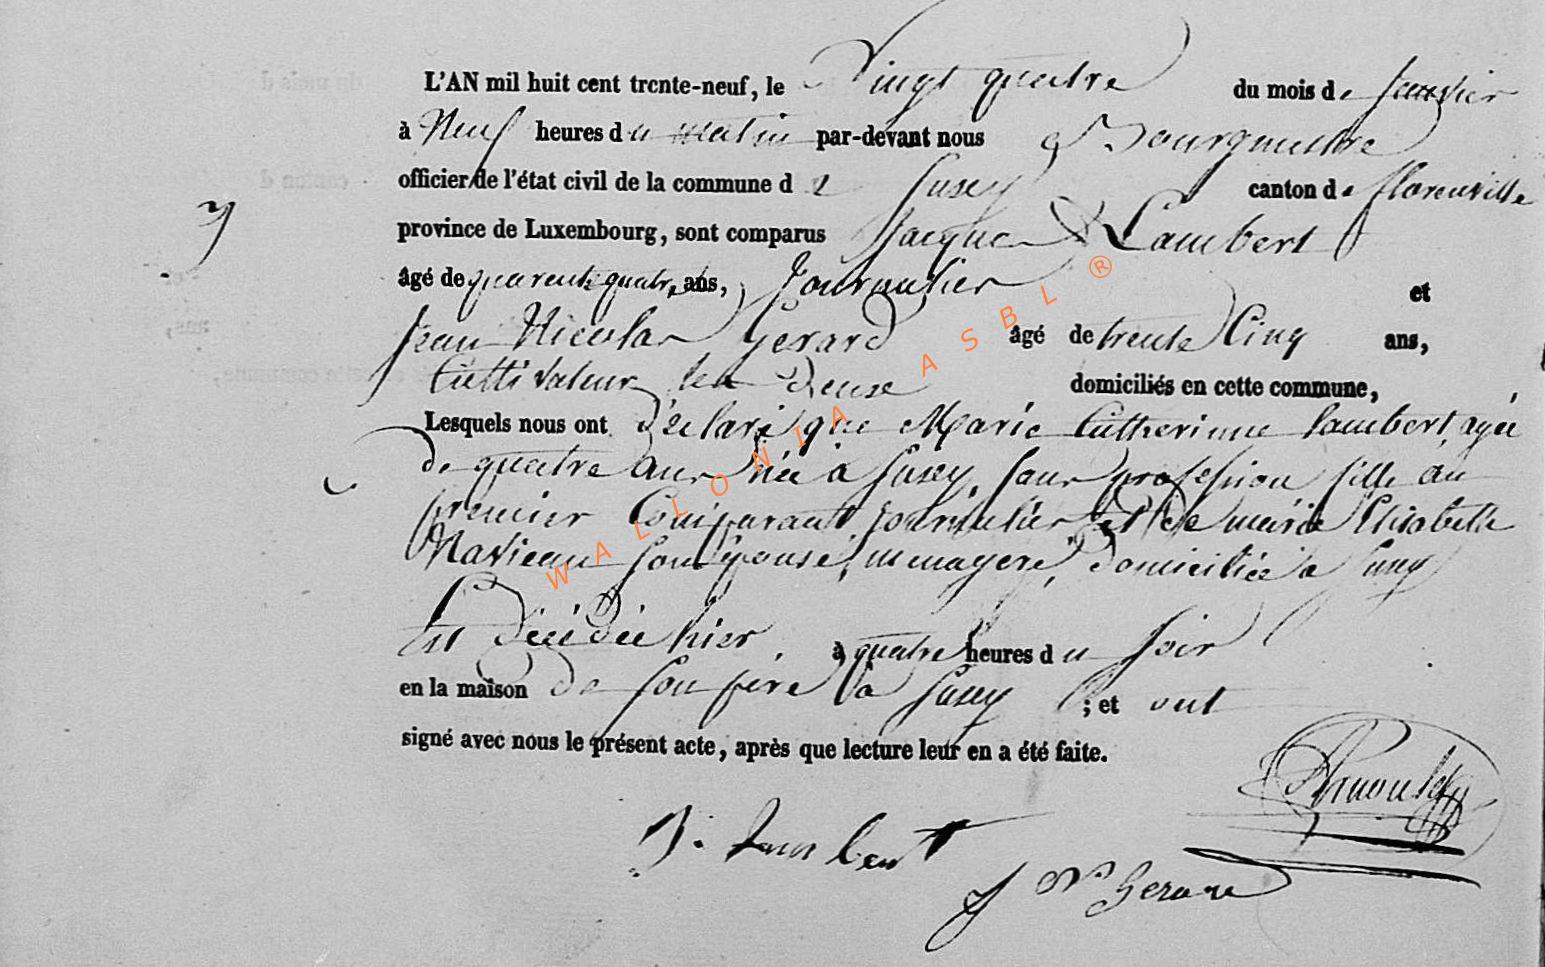 L'AN mil huit cent trente-neuf, le Vingt quatre du mois de Janvier
à Neuf heures du matin par-devant nous Bourgmestre
officier de l'état civil de la commune de Suxy canton de florenville
province de Luxembourg, sont comparus Jacques Lambert
âgé de quarente quatre ans, Journalier et
Jean Nicolas Gerard âgé de trente Cinq ans,
Cultivateur les deux domiciliés en cette commune,
Lesquels nous ont déclaré que Marie Catherinne Lambert, agée
de quatre ans née à Suxy, sans profession fille au
premier Comparant journalier et de marie Elisabette
son Epouse, menagere, domiciliée a Suxy
Est décédée hier, à quatre heures du soir
en la maison de son père à Suxy ; et ont
signé avec nous le présent acte, après que lecture leur en a été faite.
J. Lambert
J N Gerard
WALLONIA ASBL ®